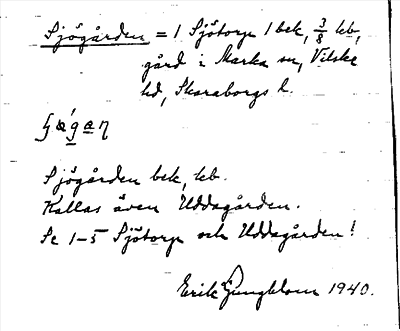 Sjögården = 1 Sjötorp 1 bek, 3/8 kb,
gård i Marka sn, Vilske
hd, Skaraborgs l.
Sjögården bek, kb.
Kallas även Uddagården.
Se 1-5 Sjötorp och Uddagården!
Erik Ljungblom 1940.